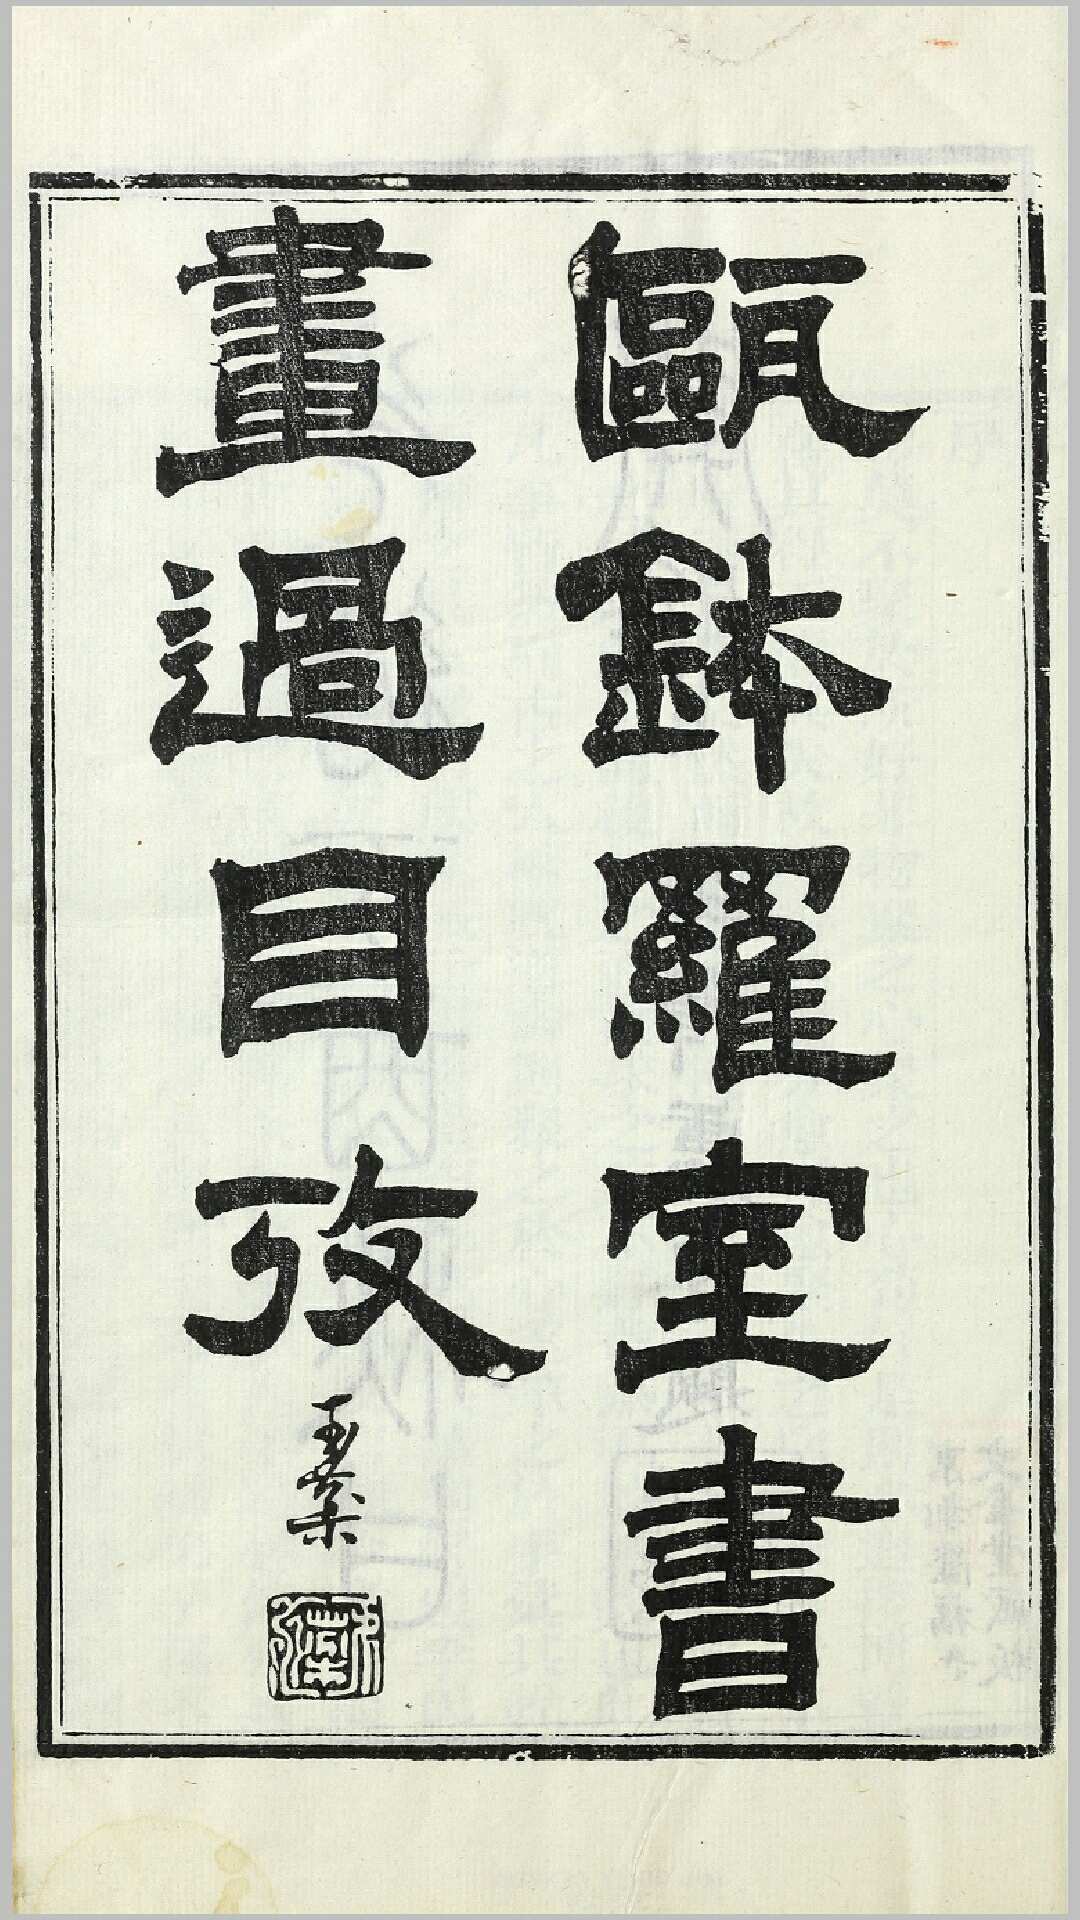 甌鉢羅室書
畫過目攷
玉棻